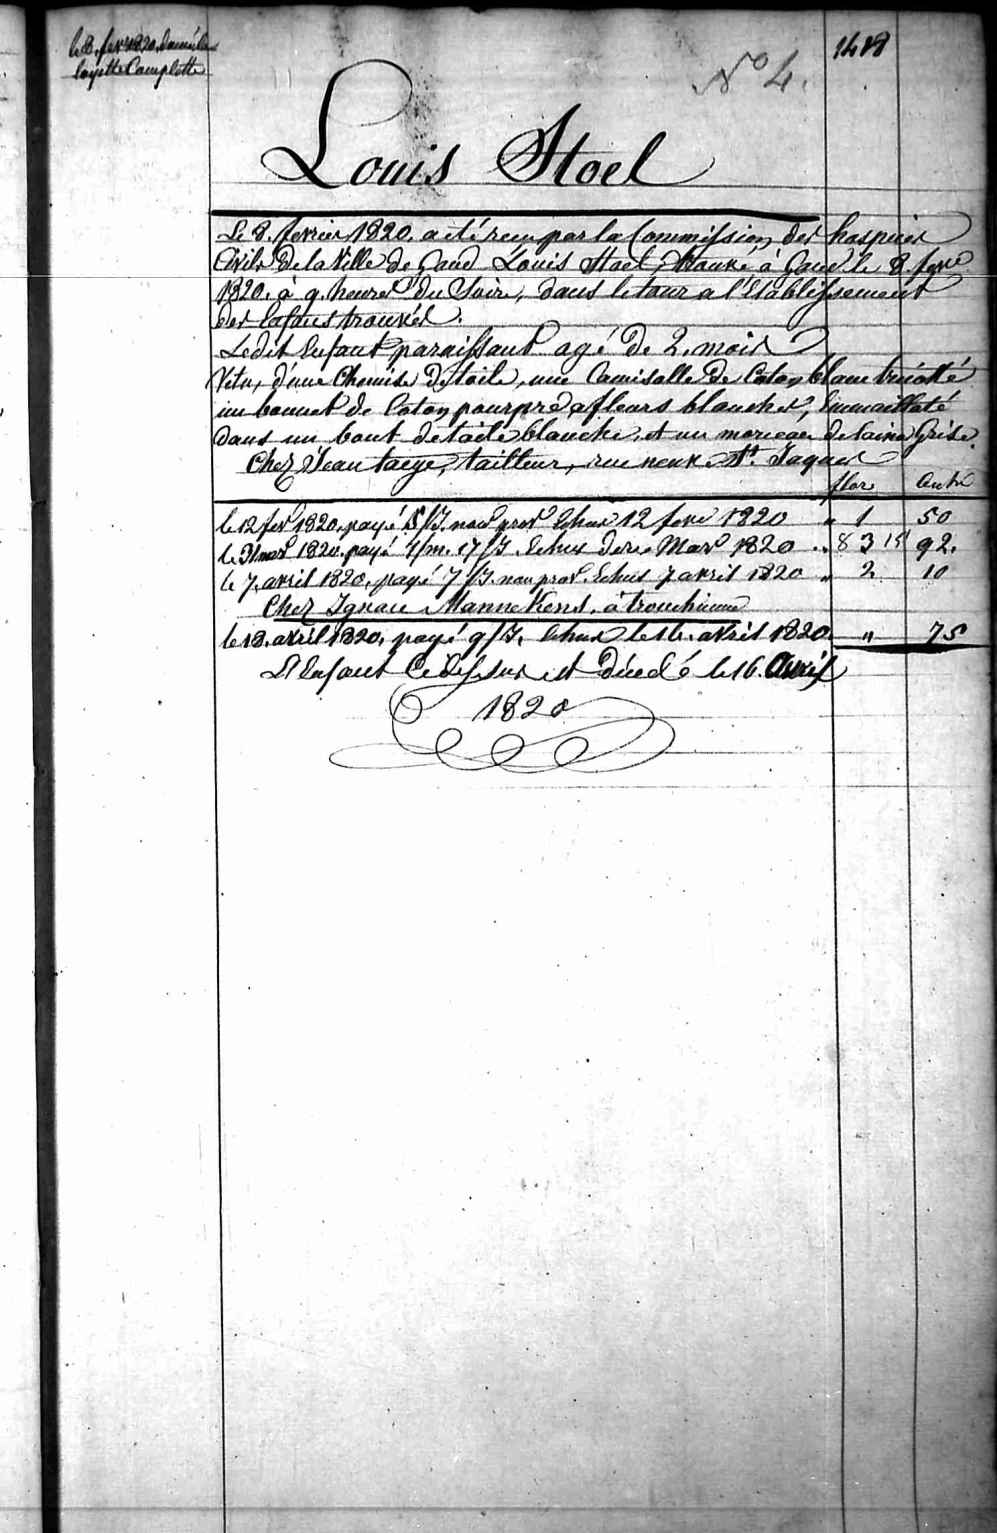 le 8. fev 1820. donné la
layette Complette
1418
N° 4.
Louis Stoel
Le 8. fevrier 1820. a eté recu par la Commission des hospices
Civils de la Ville de Gand Louis Stoel, trouvé à Gand le 8 fevr
1820. à 9 heures du Soire, dans le tour a l'Etablissement
des Enfans trouvés.
Ledit Enfant paraissant agé de 2. mois
Vetu, d'une Chemise de toile, une Camisolle de Coton blanc tricotté
un bonnet de Coton pourpre a fleurs blanches, Emmailloté
dans un bout de toile blanche, et un morceau de laine Grise.
Chez Jean taeye, tailleur, rue neuve St. Jaques
flor Cents
le 12 fevr 1820. payé 5/J. nour prov Echus 12 fevr 1820 " 1 50
le 31 mars 1820. payé 1/m. 17/J. Echus der Mars 1820 .. 8 3 15 92.
le 7. avril 1820. payé 7/J. nou prov. Echus 7 avril 1820 " 2 10
Chez Ignace Mannekens, à tronchienne
le 18. avril 1820. payé 9/J. Echus le 16. avril 1820. " 75
L'Enfant Ci dessus est décedé le 16. Avril
1820